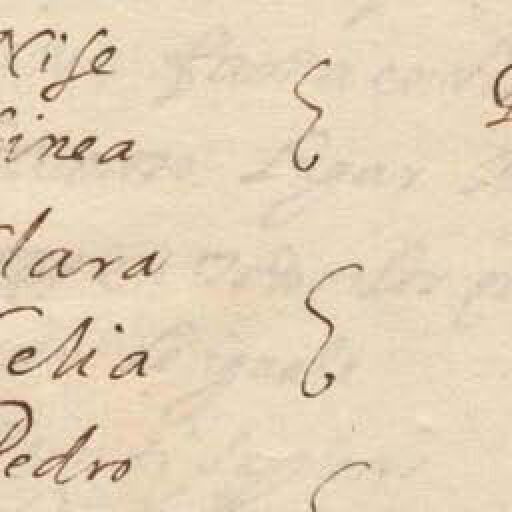 Nise
Finea
Clara
Celia
Pedro